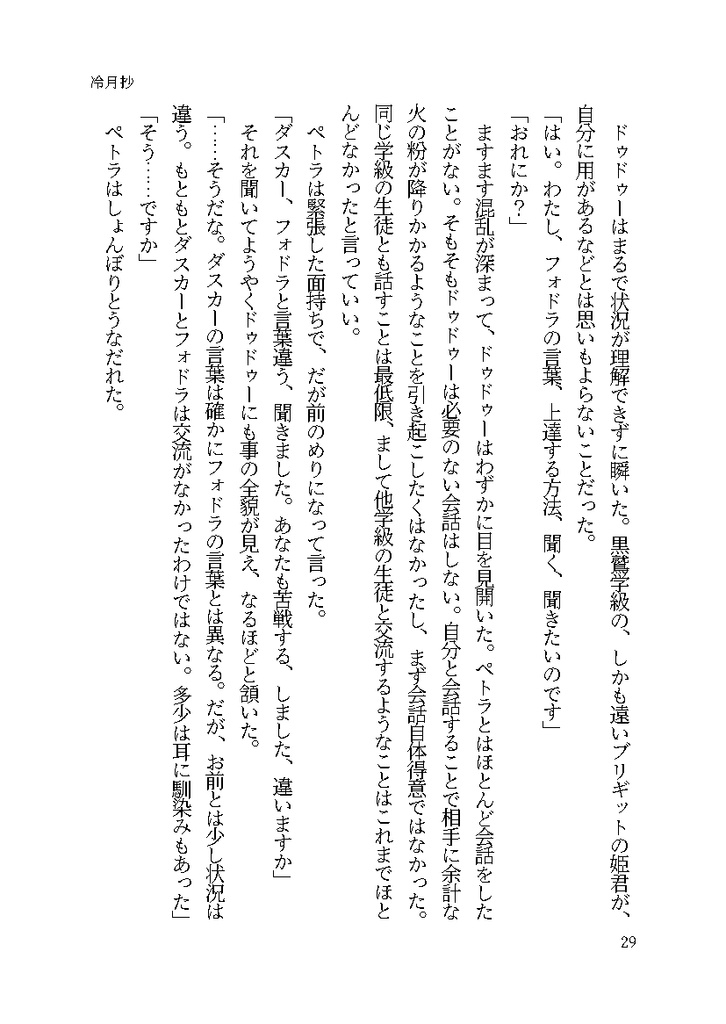 冷月抄
ドゥドゥーはまるで状況が理解できずに瞬いた。黒鷲学級の、しかも遠いブリギットの姫君が、
自分に用があるなどとは思いもよらないことだった。
「はい。わたし、フォドラの言葉、上達する方法、聞く、聞きたいのです」
「おれにか？」
ますます混乱が深まって、ドゥドゥーはわずかに目を見開いた。ペトラとはほとんど会話をした
ことがない。そもそもドゥドゥーは必要のない会話はしない。自分と会話することで相手に余計な
火の粉が降りかかるようなことを引き起こしたくはなかったし、まず会話自体得意ではなかった。
同じ学級の生徒とも話すことは最低限、まして他学級の生徒と交流するようなことはこれまでほと
んどなかったと言っていい。
ペトラは緊張した面持ちで、だが前のめりになって言った。
「ダスカー、フォドラと言葉違う、聞きました。あなたも苦戦する、しました、違いますか」
それを聞いてようやくドゥドゥーにも事の全貌が見え、なるほどと頷いた。
「……そうだな。ダスカーの言葉は確かにフォドラの言葉とは異なる。だが、お前とは少し状況は
違う。もともとダスカーとフォドラは交流がなかったわけではない。多少は耳に馴染みもあった」
「そう……ですか」
ペトラはしょんぼりとうなだれた。
29